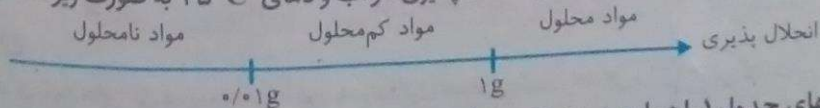 مواد محلول مواد کم‌محلول مواد نامحلول
انحلال پذیری
۰/۰۱g ۱g